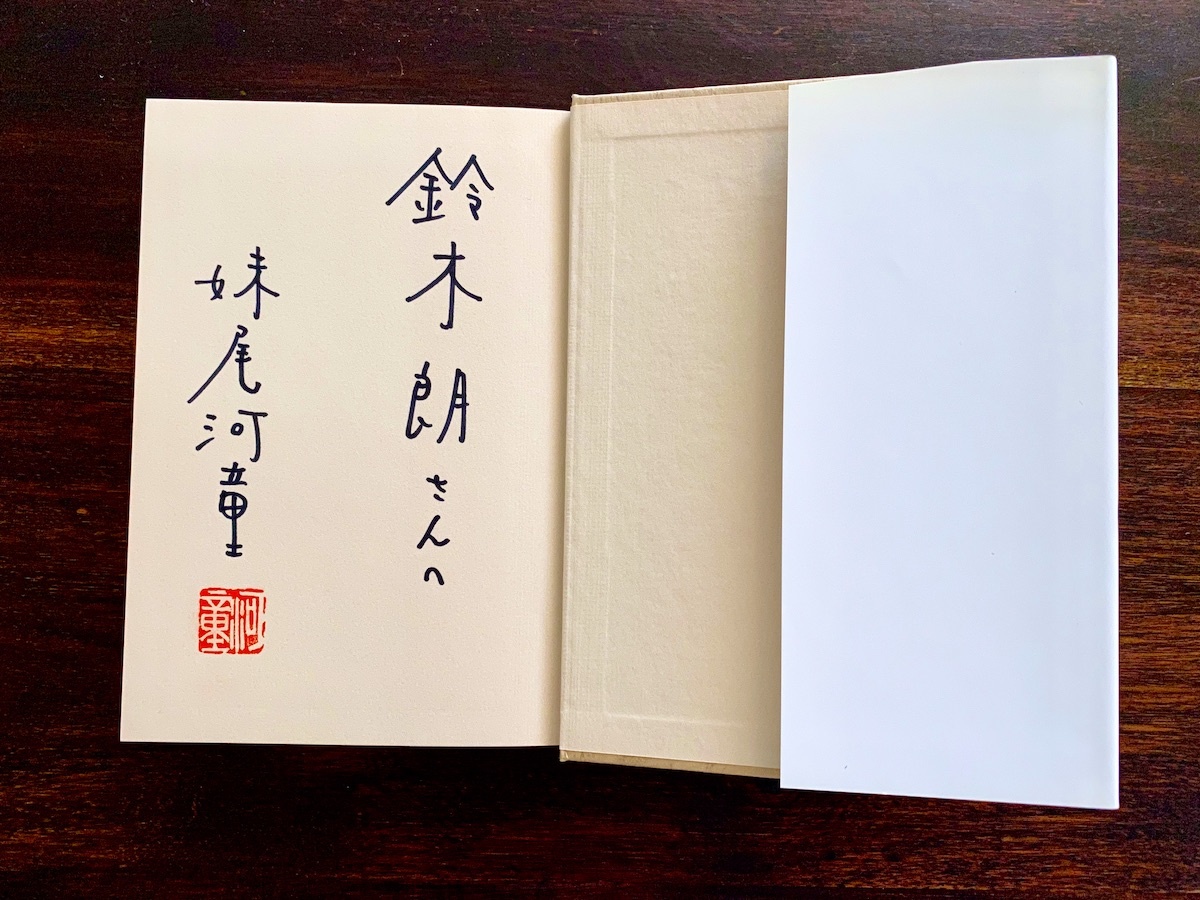 鈴木朗さんへ
妹尾河童
河童